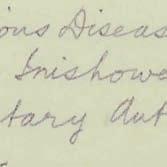 ious Diseas
Inishowe
tary Aut